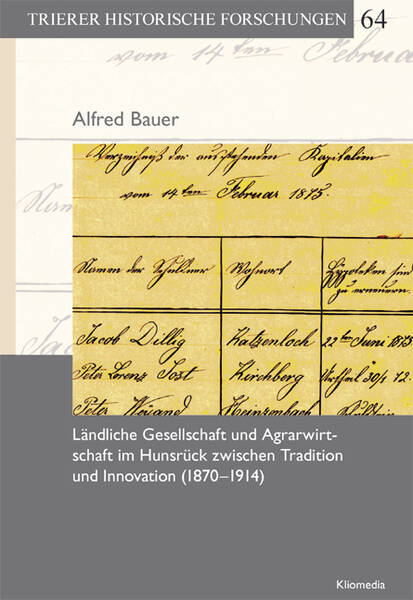 TRIERER HISTORISCHE FORSCHUNGEN 64
vom 14ten Februar
Alfred Bauer
Verzeichniß der ausstehenden Kapitalien
vom 14ten Februar 1873.
Namen der Schuldner Wohnort Hypotheken sind zu erneuern.
Jacob Dillig Katzenloch 22ten Juni 1873
Peter Lorenz Jost Kirchberg Urtheil 30/1 72
Peter Weiand Heinzenbach
Ländliche Gesellschaft und Agrarwirt-
schaft im Hunsrück zwischen Tradition
und Innovation (1870–1914)
Kliomedia